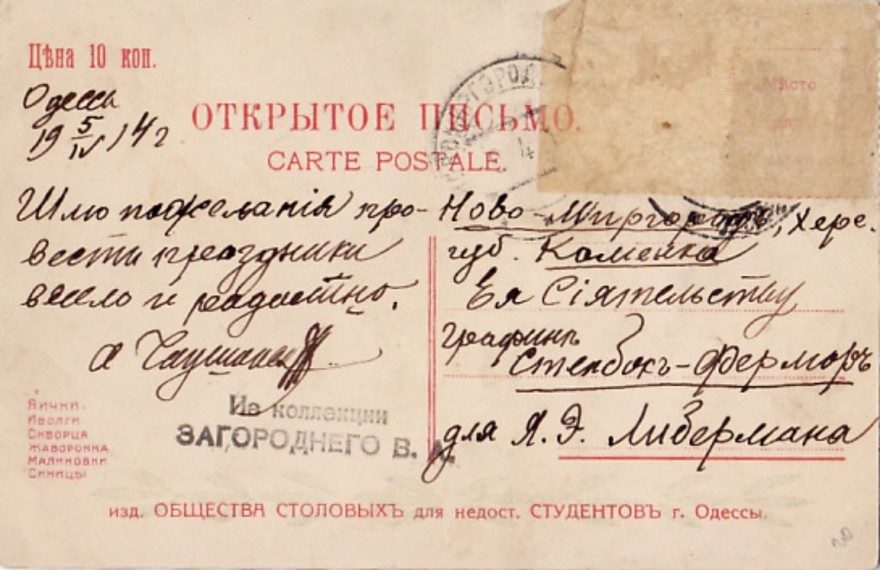 Цѣна 10 коп.
Одесса
19 5/IV 14 г
ОТКРЫТОЕ ПИСЬМО.
CARTE POSTALE.
Место
Шлю пожеланія про-
вести праздники
весело и радостно.
Ново-Миргородъ, Херс.
губ. Каменка
Ея Сіятельству
Графинѣ
Стенбокъ-Ферморъ
для Я. Э. Либермана
Яички:
Иволги
Скворца
Жаворонка
Малиновки
Синицы
Из коллекции
ЗАГОРОДНЕГО В. А.
изд. ОБЩЕСТВА СТОЛОВЫХЪ для недост. СТУДЕНТОВЪ г. Одессы.